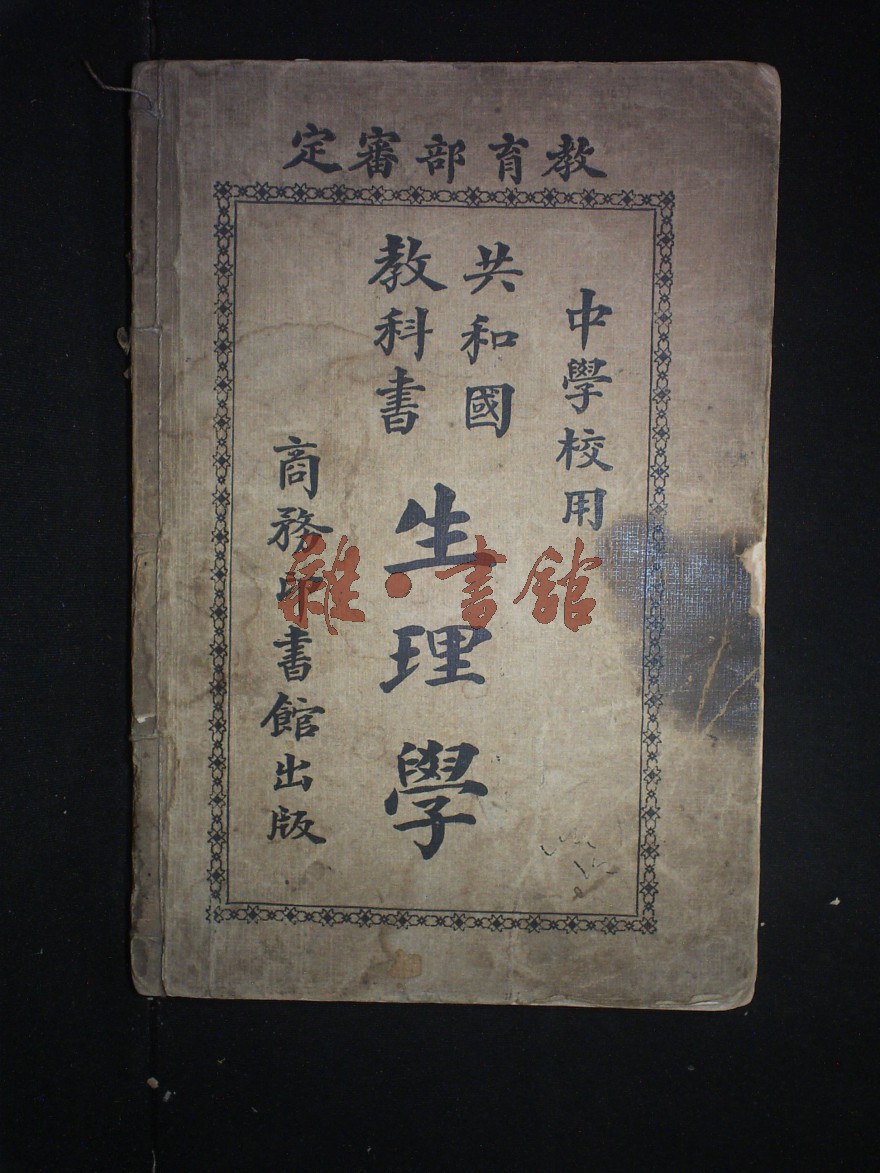 教育部審定
中學校用
共和國
教科書
生理學
商務印書館出版
雜·書館